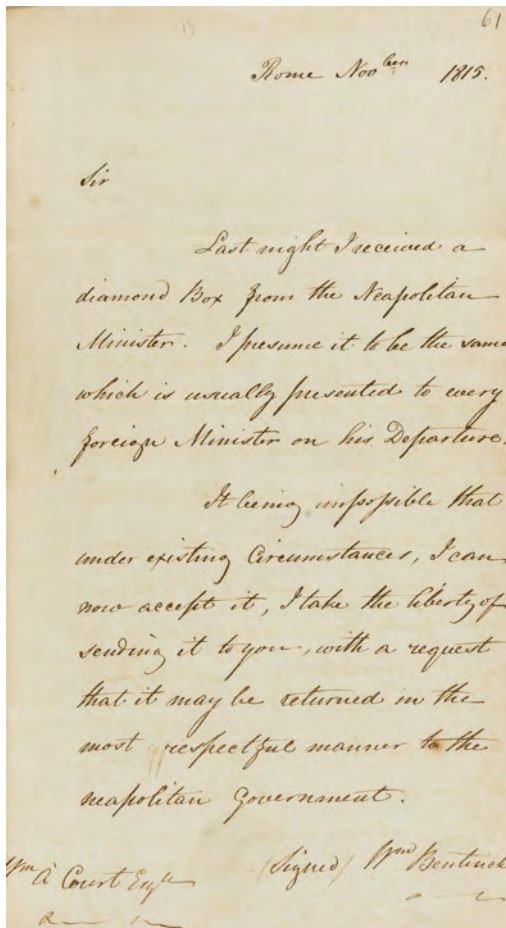 61
Rome Nov^ber 1815.
Sir
Last night I received a
diamond Box from the Neapolitan
Minister. I presume it to be the same
which is usually presented to every
foreign Minister on his Departure.
It being impossible that
under existing Circumstances, I can
now accept it, I take the liberty of
sending it to you, with a request
that it may be returned in the
most respectful manner to the
neapolitan Government.
(Signed) Wm Bentinck
Wm A Court Esqre